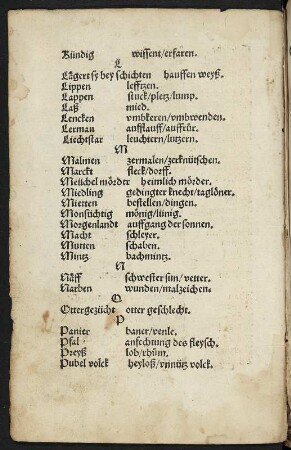 Kündig wissent/erfaren.
L
Lägert sy bey schichten hauffen weyß.
Lippen lefftzen.
Lappen stuck/pletz/lump.
Laß mied.
Lencken vmbkeren/vmbwenden.
Lerman aufflauff/auffrür.
Liechtstar leuchtern/lutzern.
M
Malmen zermalen/zerknütschen.
Marckt fleck/dorff.
Meüchel mörder heimlich mörder.
Miedling gedingter knecht/taglöner.
Mietten bestellen/dingen.
Monsüchtig mönig/lünig.
Morgenlandt auffgang der sonnen.
Macht schleyer.
Mutten schaben.
Mintz bachmintz.
N
Näff schwester sun/vetter.
Narben wunden/malzeichen.
O
Ottergezücht otter geschlecht.
P
Panier baner/venle.
Pfal anfechtung des fleysch.
Preyß lob/rhům.
Pubel volck heyloß/vnnütz volck.